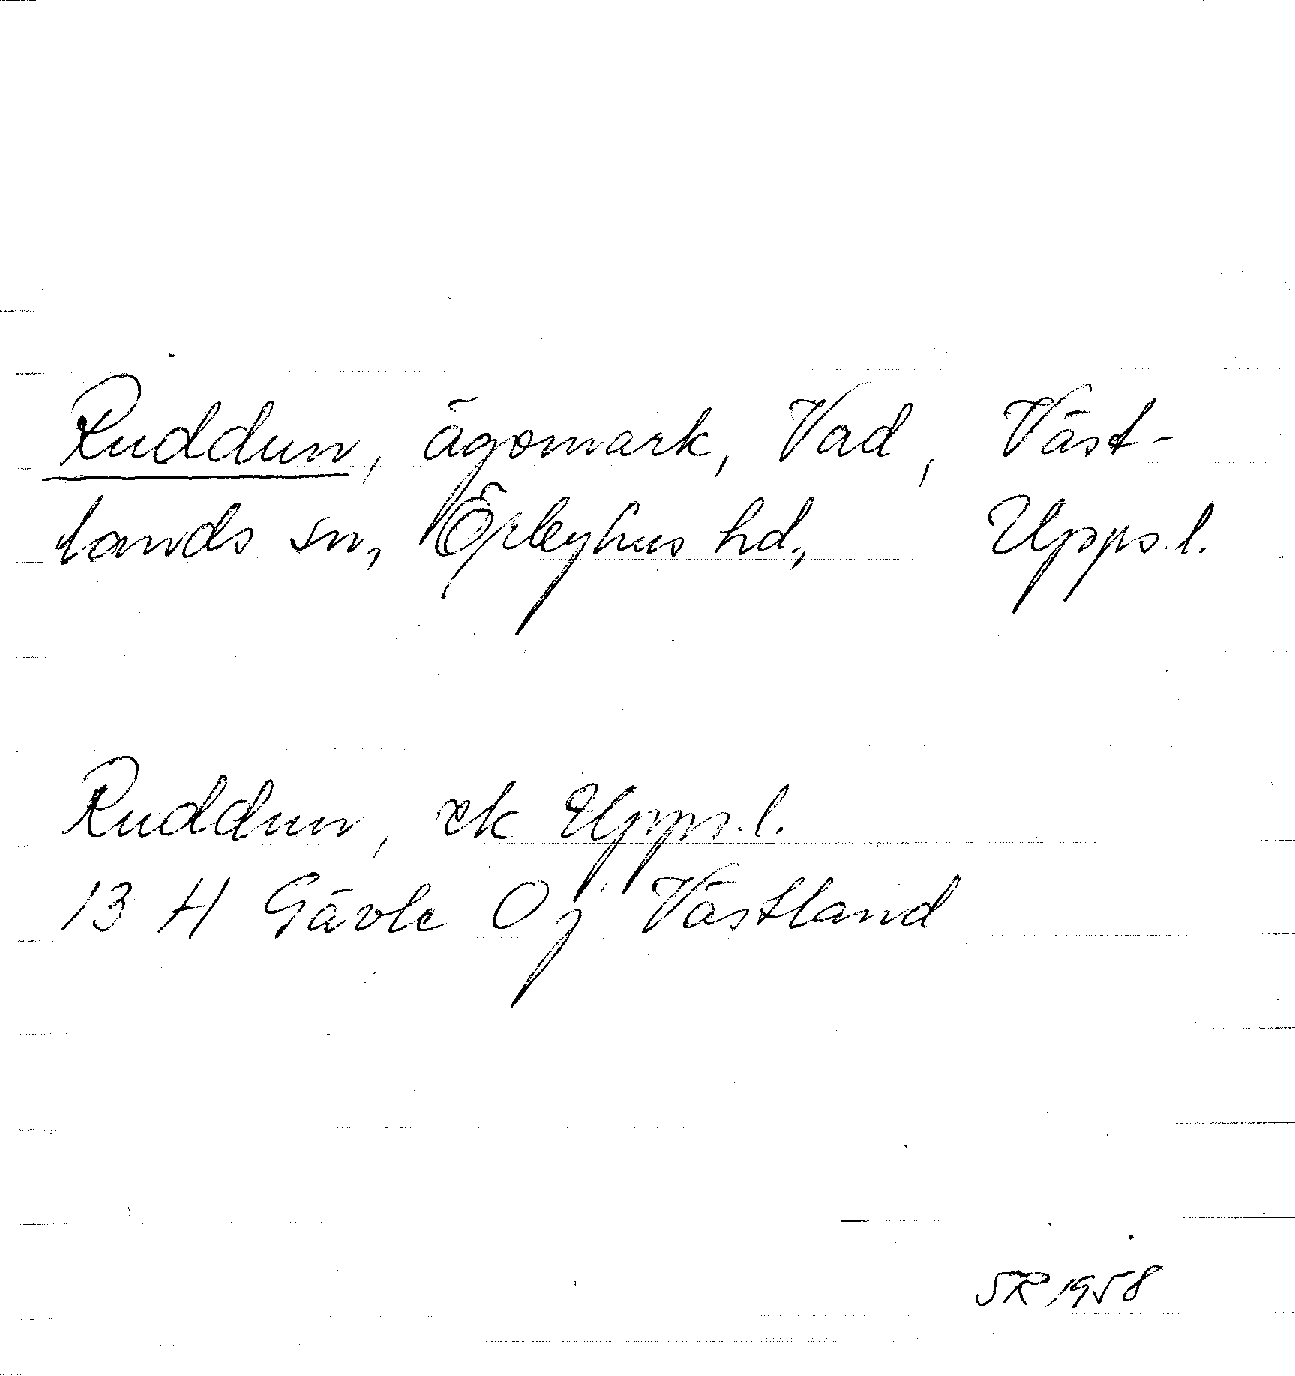 Ruddun, ägomark, Vad, Väst-
lands sn, Örbyhus hd, Upps.l.
Ruddun, ek Upps.l.
13 H Gävle Oj Västland
SR 1958